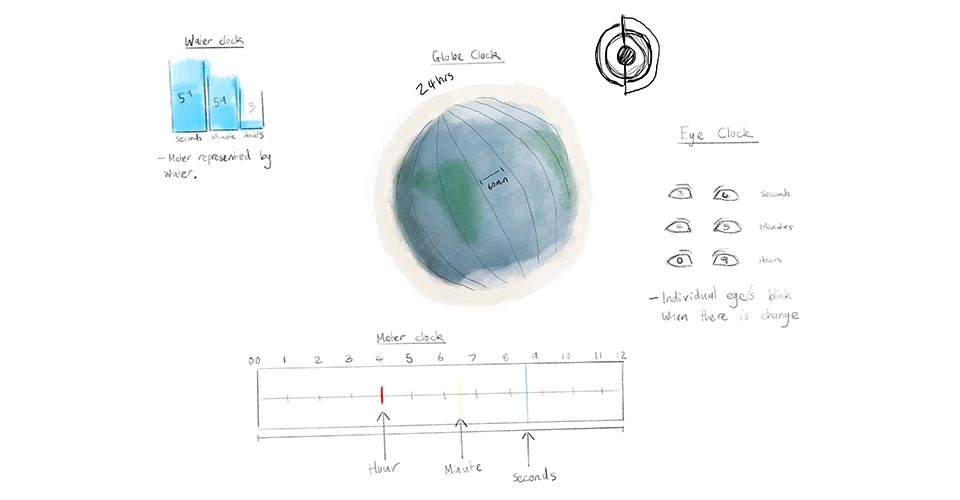 Water clock
59 59 3
Seconds Minute Hours
- Meter represented by
water.
Globe Clock
24hrs
60min
Eye Clock
3 6 Seconds
4 5 Minutes
0 9 Hours
- Individual eye/s blink
when there is change
Meter clock
00 1 2 3 4 5 6 7 8 9 10 11 12
Hour Minute Seconds